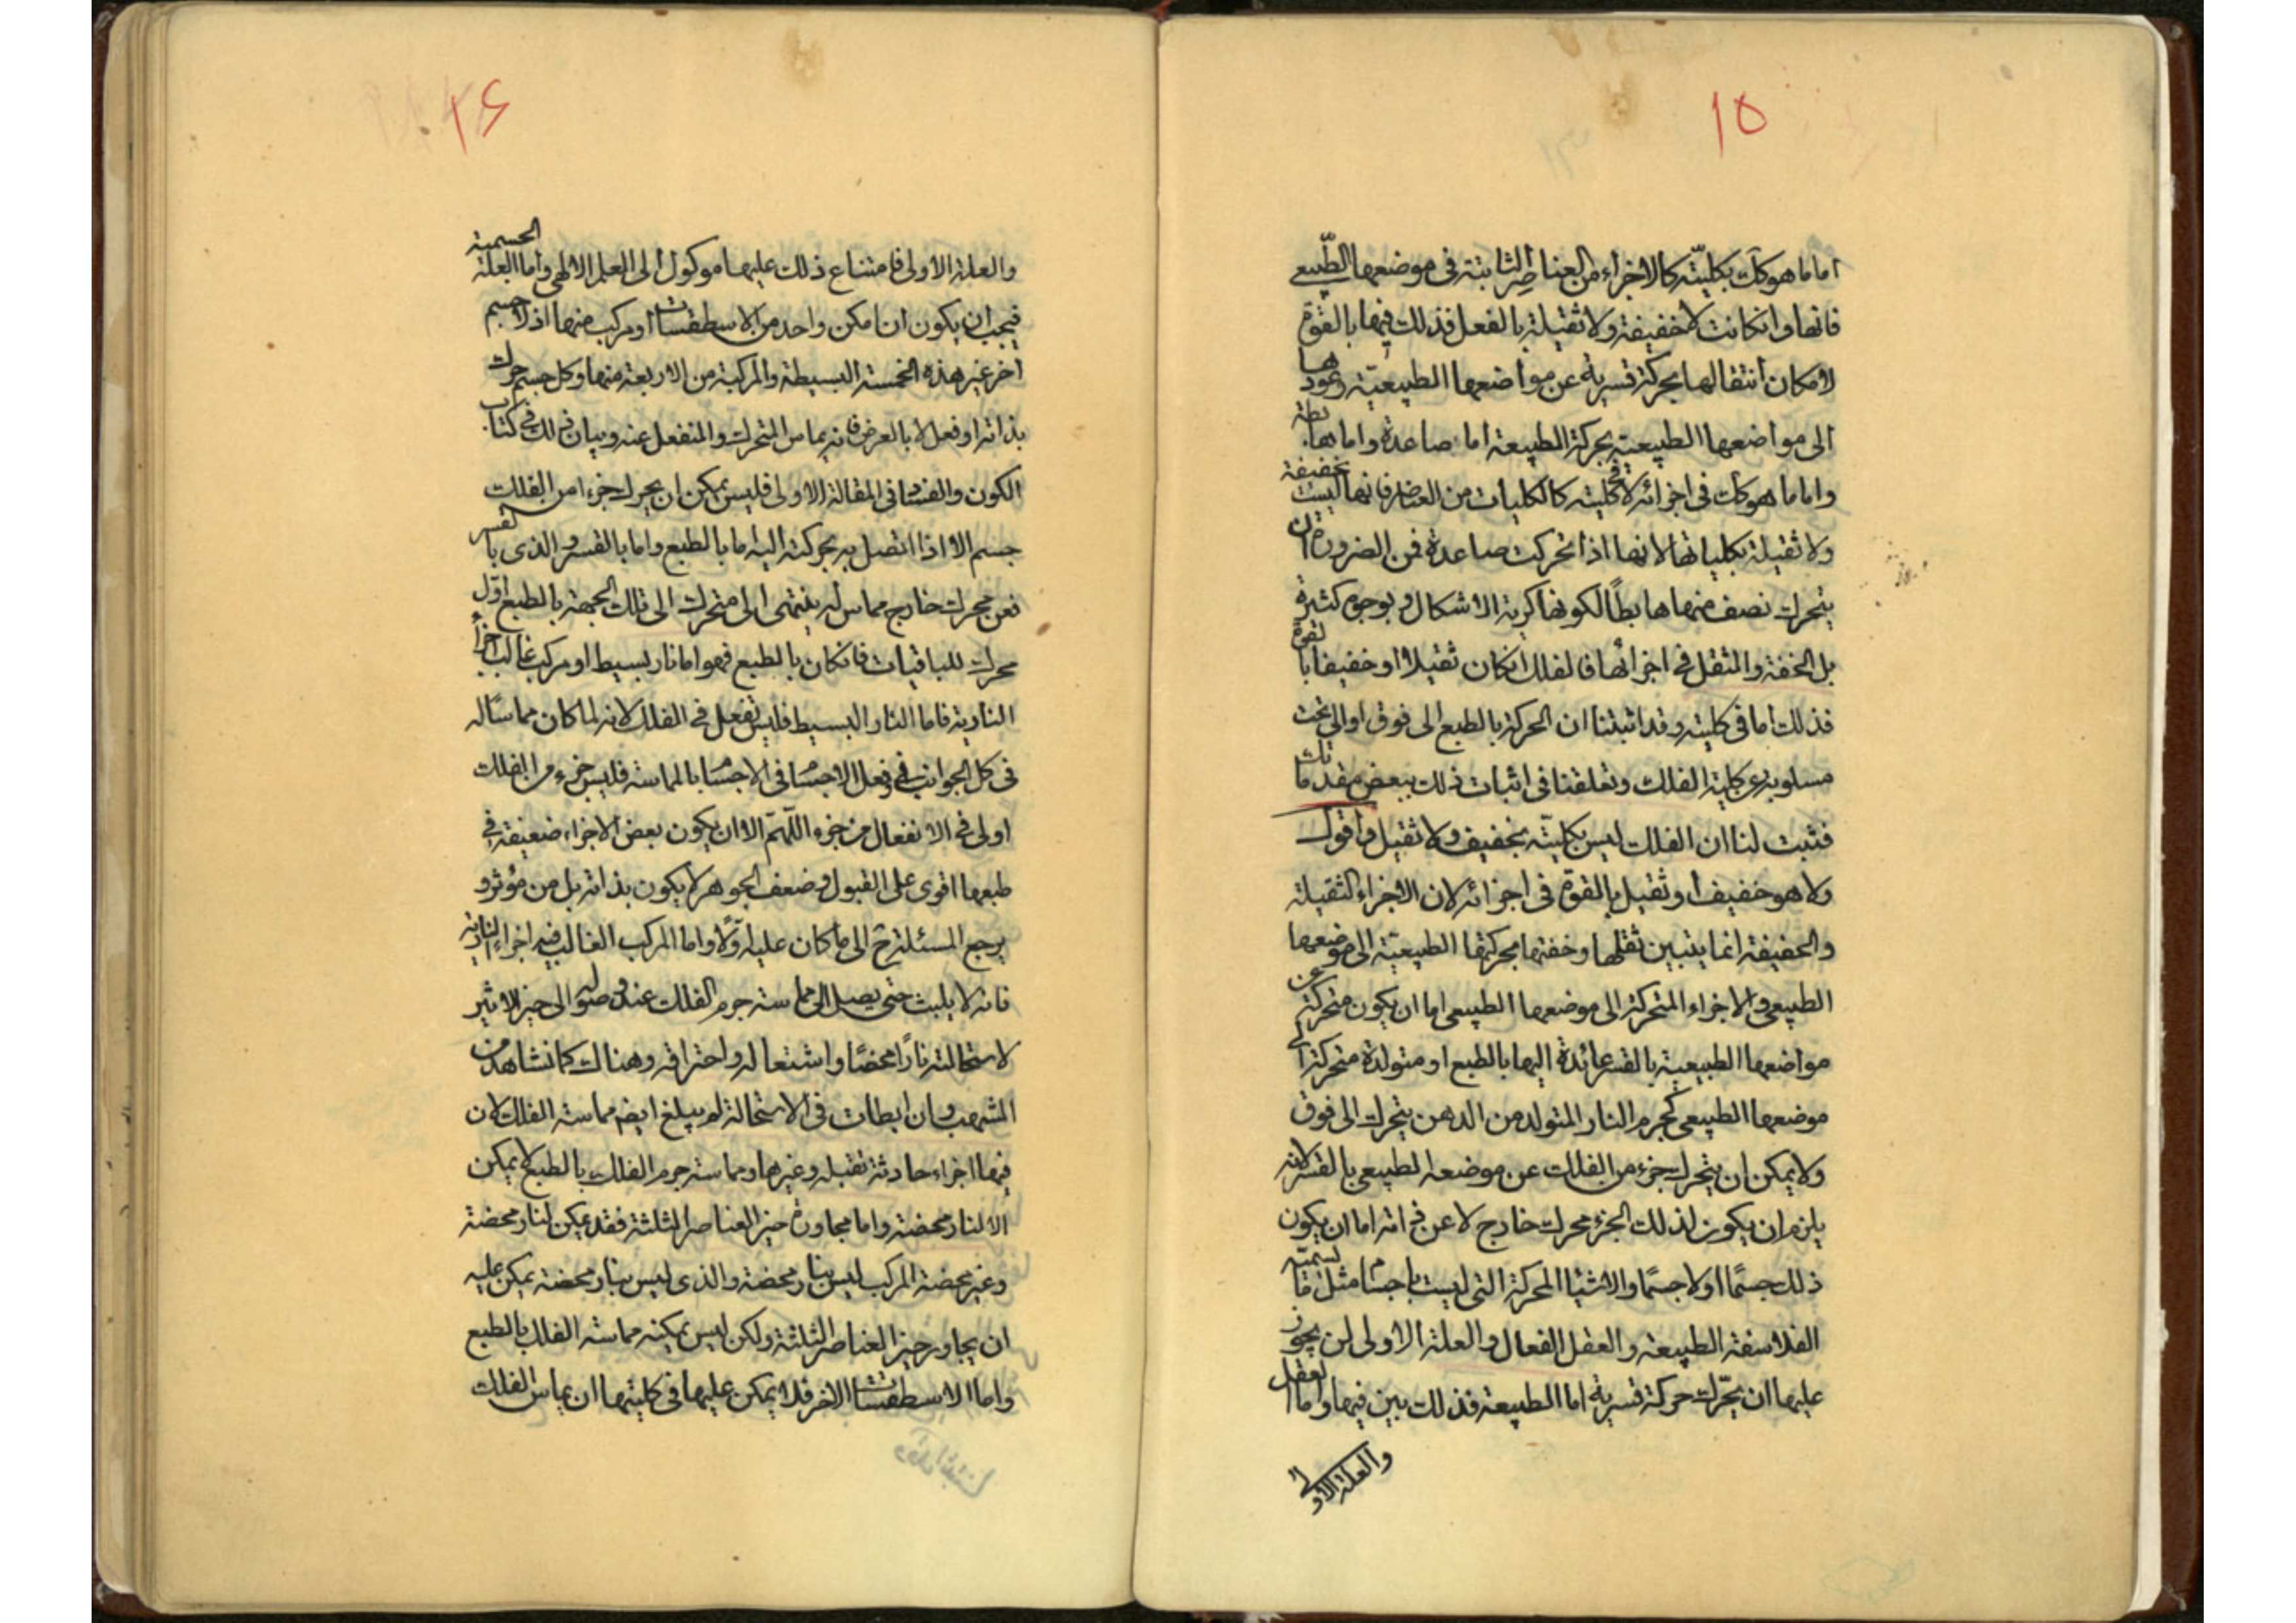 ١٥
اما ما هو كك بكليته كالاجزاء من العناصر الثابتة فى موضعها الطبيعى
فانها وان كانت لا خفيفة ولا ثقيلة بالفعل فذلك فيها بالقوة
لامكان انتقالها بحركة قسرية عن مواضعها الطبيعية وعودها
الى مواضعها الطبيعية بحركة الطبيعة اما صاعدة واما هابطة
واما ما هو كك فى اجزائه لا فى كليته كالكليات من العناصر فانها ليست بخفيفة
ولا ثقيلة بكلياتها لانها اذا تحركت صاعدة فمن الضرورة ان
يتحرك نصف منها هابطاً لكونها كرية الاشكال وبوجوه كثيرة
بل الخفة والثقل فى اجزائها فالفلك ان كان ثقيلا او خفيفا بالقوة
فذلك اما فى كليته وقد اثبتنا ان الحركة بالطبع الى فوق او الى تحت
مسلوبة عن كلية الفلك وتعلقنا فى اثبات ذلك ببعض مقدماتك
فثبت لنا ان الفلك ليس بكليته بخفيف ولا ثقيل واقول
ولا هو خفيف او ثقيل بالقوة فى اجزائه لان الاجزاء الثقيلة
والخفيفة انما يتبين ثقلها وخفتها بحركتها الطبيعية الى موضعها
الطبيعى والاجزاء المتحركة الى موضعها الطبيعى اما ان يكون متحركة عن
مواضعها الطبيعية بالقسر عائدة اليها بالطبع او متولدة متحركة الى
موضعها الطبيعى كجرم النار المتولد من الدهن يتحرك الى فوق
ولا يمكن ان يتحرك جزء من الفلك عن موضعه الطبيعى بالقسر لانه
يلزم ان يكون لذلك الجزء محرك خارج لا عن ذاته اما ان يكون
ذلك جسمًا او لا جسمًا والاشيا المحركة التى ليست باجسام مثل ما تسميه
الفلاسفة الطبيعة والعقل الفعال والعلة الاولى لن يجوز
عليها ان يحرك حركة قسرية اما الطبيعة فذلك بين فيها واما العقل
والعلة الاولى
١٦
والعلة الاولى فامتناع ذلك عليها موكول الى العلم الالهى واما العلة الجسمية
فيجب ان يكون ان امكن واحد من الاسطقسات او مركب منها اذ لا جسم
اخر غير هذه الخمسة البسيطة والمركبة من الاربعة منها وكل جسم حرك
بذاته او فعل لا بالعرض فانه يماس المتحرك والمنفعل عنه وبيان ذلك فى كتاب
الكون والفساد فى المقالة الاولى فليس يمكن ان يحرك جزءا من الفلك
جسم الا اذا اتصل به بحركته اليه اما بالطبع واما بالقسر والذى بالقسر
فعن محرك خارج مماس له ينتهى الى متحرك الى تلك الجهة بالطبع اوّل
محرك للباقيات فان كان بالطبع فهو اما نار بسيط او مركب غالب اجزأ
النارية فاما النار البسيط فليس تفعل فى الفلك لانه لما كان مماسًا له
فى كل الجوانب وفعل الاجسام فى الاجسام بالمماسة فليس جزء من الفلك
اولى فى الانفعال من جزء اللّهمّ الا ان يكون بعض الاجزاء ضعيفة فى
طبعها اقوى على القبول وضعف الجوهر لا يكون بذاته بل من مؤثر و
يرجع المسئلة ح الى ما كان عليه اوّلًا واما المركب الغالب فيه اجزاء النارية
فانه لا يلبث حتى يصل الى مماسة جرم الفلك عند وصوله الى حيز الاثير
لاستحالته نارًا محضًا واشتعاله واحتراقه وهناك كما نشاهد من
الشهب وان ابطات فى الاستحالة لم يبلغ ايضم مماسة الفلك لان
فيها اجزاء حادثة ثقيلة وغيرها ومماسة جرم الفلك بالطبع لا يمكن
الا لنار محضة واما مجاورة حيز العناصر الثلثة فقد يمكن لنار محضة
وغير محضة المركب ليس بنار محضة والذى ليس بنار محضة يمكن عليه
ان يجاور حيز العناصر الثلثة ولكن ليس يمكنه مماسة الفلك بالطبع
واما الاسطقسات الاخر فلا يمكن عليها فى كليتها ان يماس الفلك